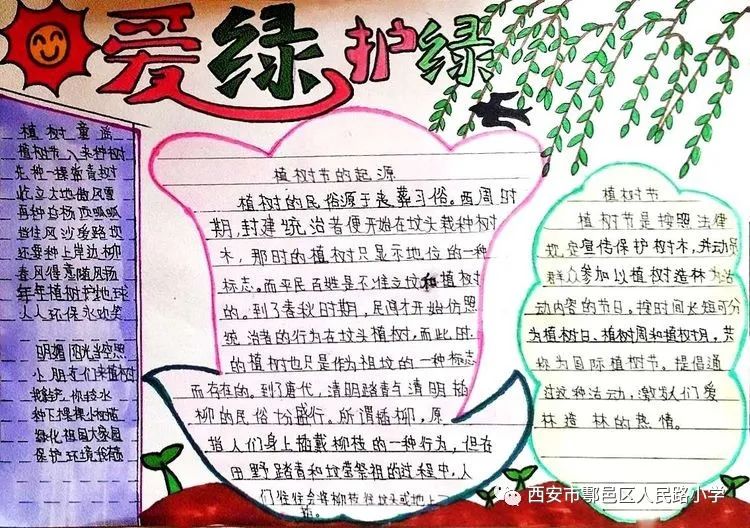 爱绿护绿
植树童谣
植树节 人来种树
先种一棵常青树
挺立大地做风景
再种白杨顶呱呱
挡住风沙爱路玩
还要种上岸边柳
春风得意随风扬
年年植树护地球
人人环保永欢笑
明媚阳光当空照
小朋友们来植树
我铲 你给水
种下棵棵小树苗
绿化祖国大家园
保护环境
植树节的起源
植树的民俗源于丧葬习俗。西周时
期,封建统治者便开始在坟头栽种树
木,那时的植树只显示地位的一种
标志。而平民百姓是不准立坟和植树
的。到了春秋时期,民间才开始仿照
统治者的行为在坟头植树,而此时
的植树也只是作为祖坟的一种标志
而存在的。到了唐代,清明踏青与清明插
柳的民俗十分盛行。所谓插柳,原
指人们身上插戴柳枝的一种行为,但在
田野踏青和坟茔祭祖的过程中,人
们往往会将柳枝往坟头或地上一
插。
植树节
植树节是按照法律
规定宣传保护树木,并动员
群众参加以植树造林为活
动内容的节日。按时间长短可分
为植树日、植树周和植树月,共
称为国际植树节。提倡通
过这种活动,激发人们爱
林造 林的热情。
西安市鄠邑区人民路小学